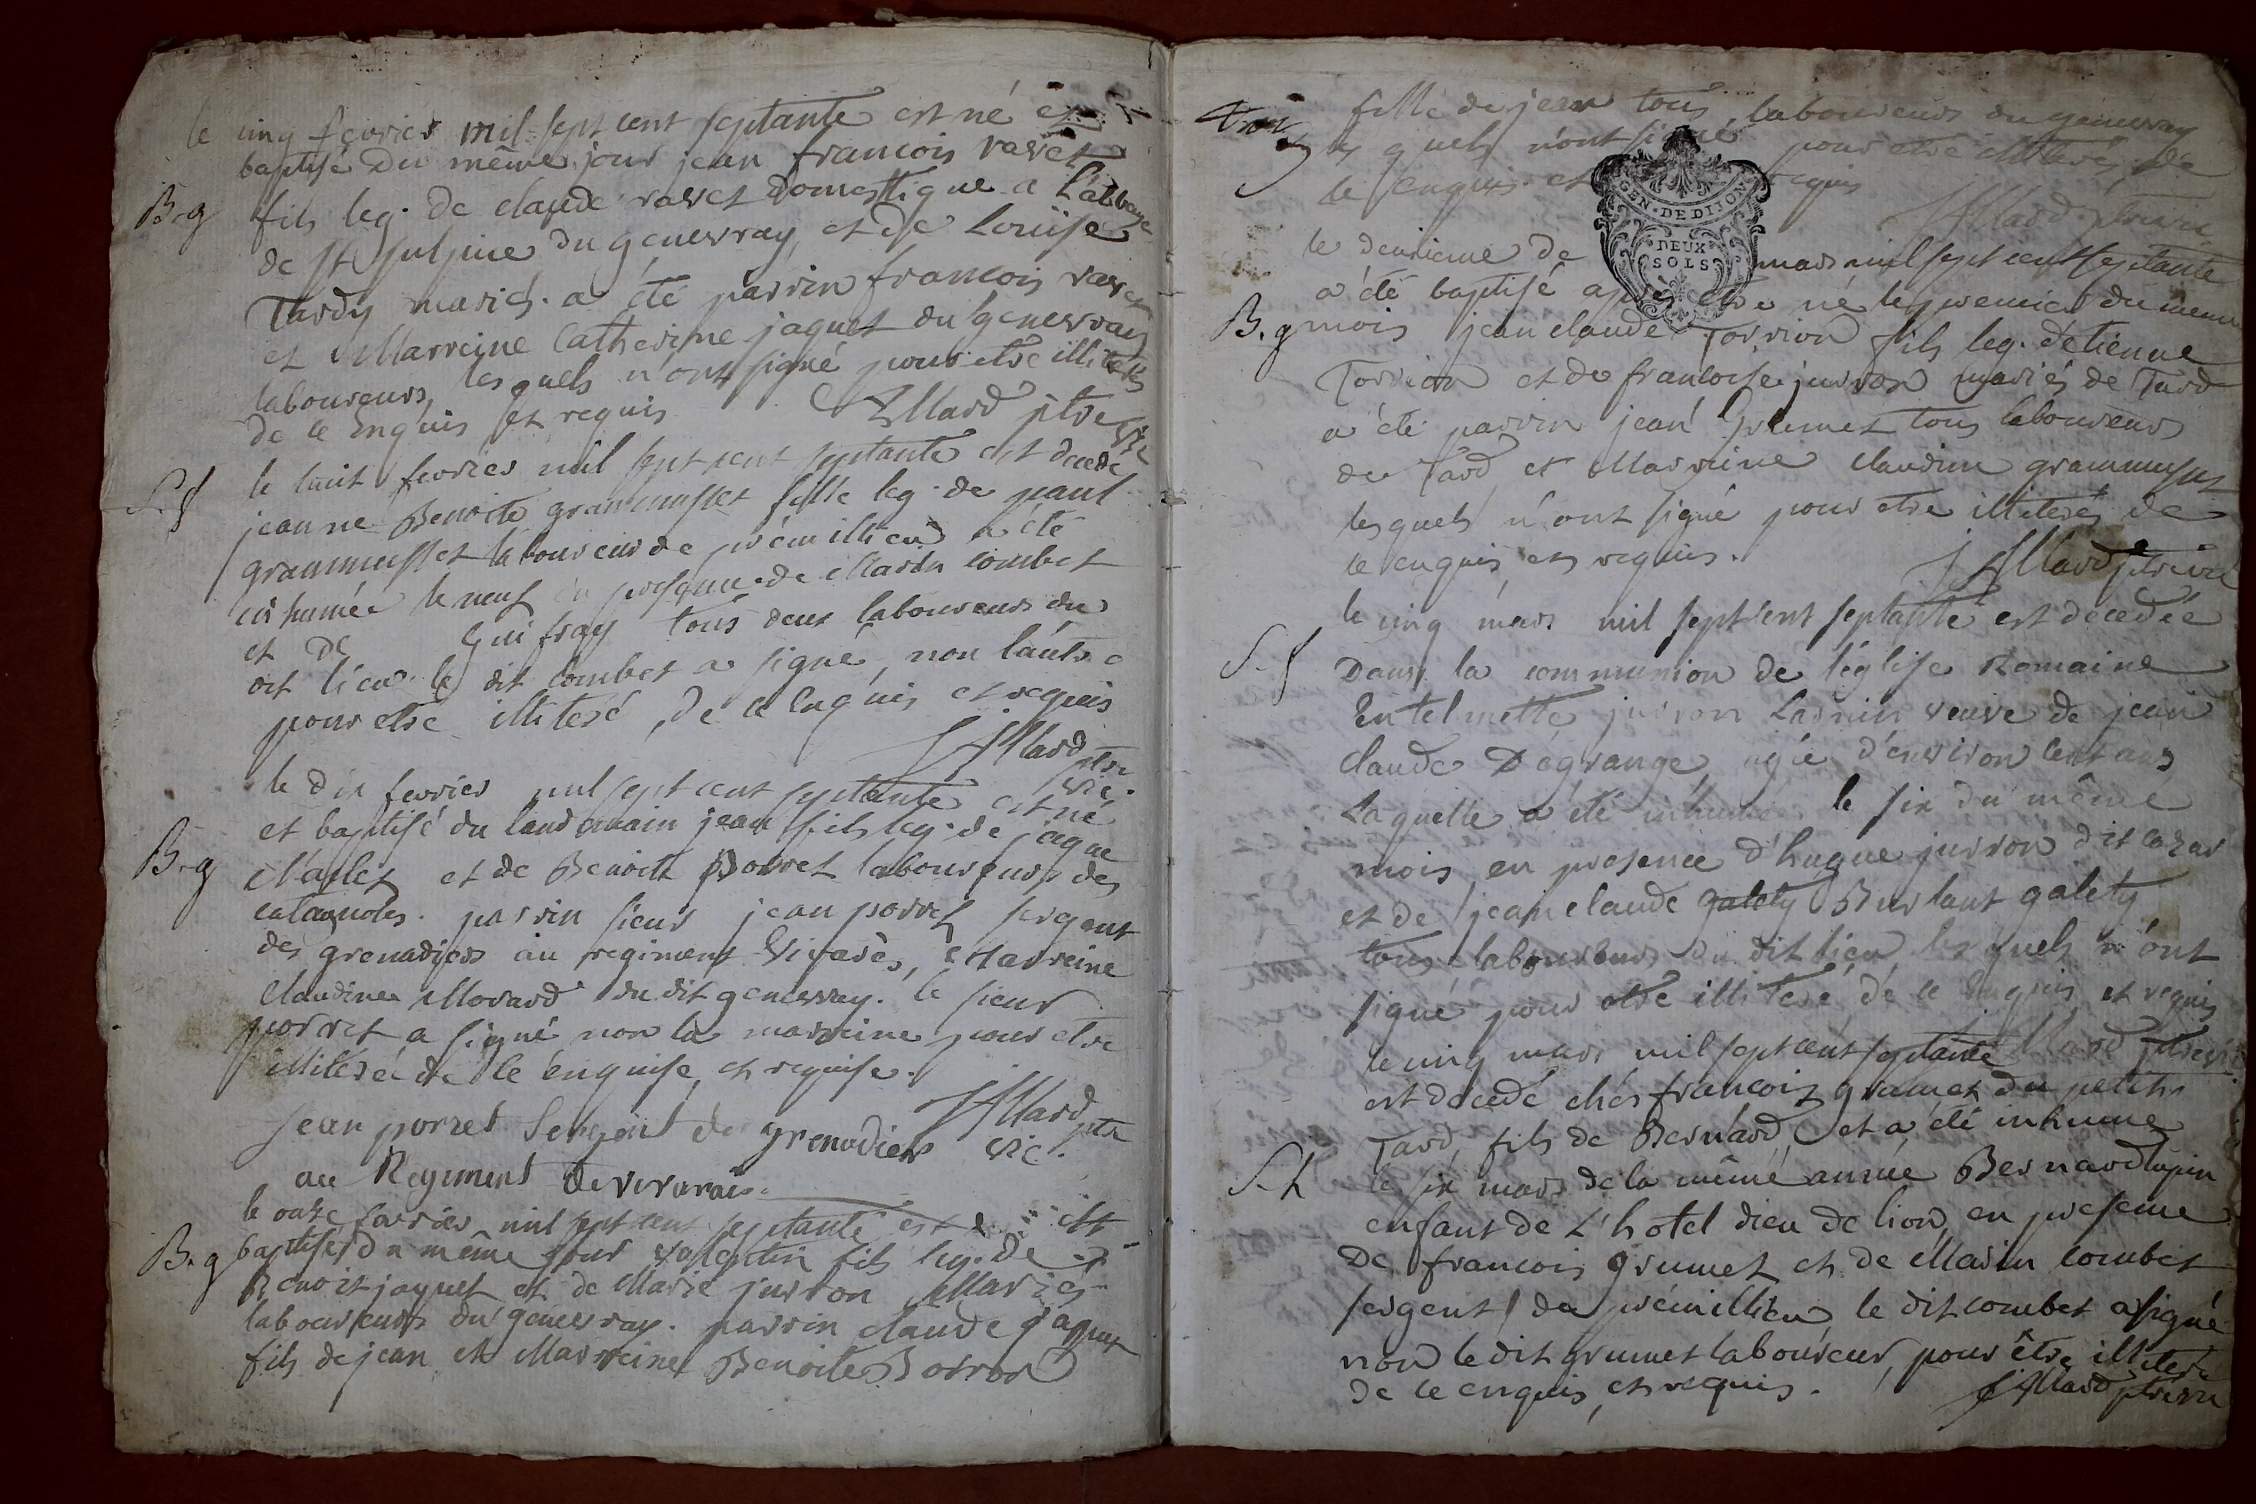 le cinq fevrier mil sept cent septante est né et
baptisé du même jour jean francois ravet
B. g fils leg. de claude ravet domestique a L'abbaye
de St Sulpice du genevray, et de Louise
Tardy mariés. a été parrin francois ravet
et Marreine Catherine jaquet du genevray
laboureurs, les quels n'ont signé pour etre illiterés
de ce enquis et requis Allard ptre vic
le huit fevrier mil sept cent septante est decedé
S. f jeanne Benoite grammusset fille leg. de paul
grammusset laboureur de prémillieu a été
inhumée le neuf en presence de Marin combet
et de Guifray tous deux laboureurs du
dit lieu. le dit combet a signé, non l'autre
pour etre illiteré, de ce enquis et requis
JAllard ptre vic.
le dix fevrier mil sept cent septante est né
et baptisé du landemain jean fils leg. de jaque
B. g et de Benoite Porret laboureurs des
catagnoles. parrin sieur jean porret sergent
des grenadiers au regiment Vivarès, Marreine
Claudine Morard du dit genevray. le sieur
porret a signé non la marreine pour etre
illiterée de ce enquise, et requise.
JAllard ptre vic.
jean porret Sergent de grenadiers
au Regiment de vivarais.
le onze fevrier mil sept cent septante est
B. g baptisé du même jour valentin fils leg. de
Benoit jaquet et de Marie juvron Mariés
laboureurs du genevray. parrin claude jaquet
fils de jean et Marreine Benoite Borron
trois fille de jean tous laboureurs du genevray
les quels n'ont signé pour etre illiterés de
ce enquis et requis
JAllard ptre vic
GEN. DE DIJON
DEUX
SOLS
le deuxieme de mars mil sept cent septante
a été baptisé apres etre né le premier du meme
B. g mois jean claude Torrion fils leg. detienne
Torrion et de francoise juvron mariés de Tard
a été parrin jean Grumet tous laboureurs
de Tard et Marreine claudine grammusset
lesquels n'ont signé pour etre illiterés de
ce enquis et requis.
JAllard ptre vic
le cinq mars mil sept cent septante est décedée
S. f Dans la communion de l'église Romaine
juvron veuve de jean
claude Degrange, agée d'environ cent ans
Laquelle a été inhumée le six du même
mois en presence d'hugue juvron dit cazar
et de jean claude galety Burlant galety
tous laboureurs du dit lieu les quels n'ont
signé pour etre illiteré de ce enquis et requis
Allard ptre vic
le cinq mars mil sept cent septante
est décedé chés francois grumet du petit
Tard, fils de Bernard, et a été inhumé
S. h le six mars de la même année Bernard lupin
enfant de L'hotel dieu de lion, en presence
De francois grumet et de Marin combet
sergent du prémillieu le dit combet a signé
non le dit grumet laboureur, pour être illiteré
de ce enquis, et requis. JAllard ptre vic